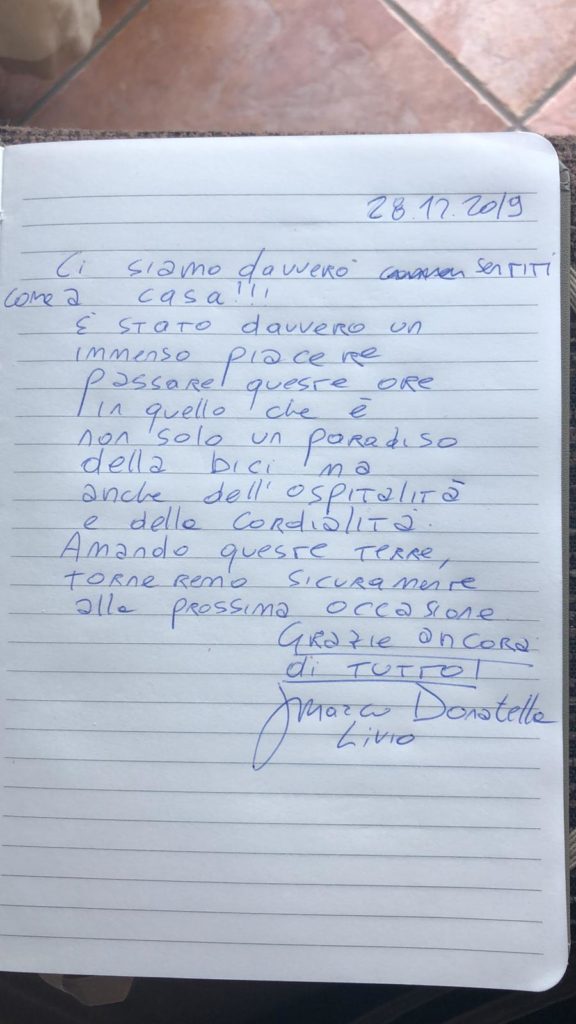 28.12.2019
Ci siamo davvero sentiti
come a casa!!!
È stato davvero un
immenso piacere
passare queste ore
in quello che è
non solo un paradiso
della bici ma
anche dell'ospitalità
e della cordialità.
Amando queste terre,
torneremo sicuramente
alla prossima occasione
Grazie ancora
di tutto!
Marco Donatella
Livio